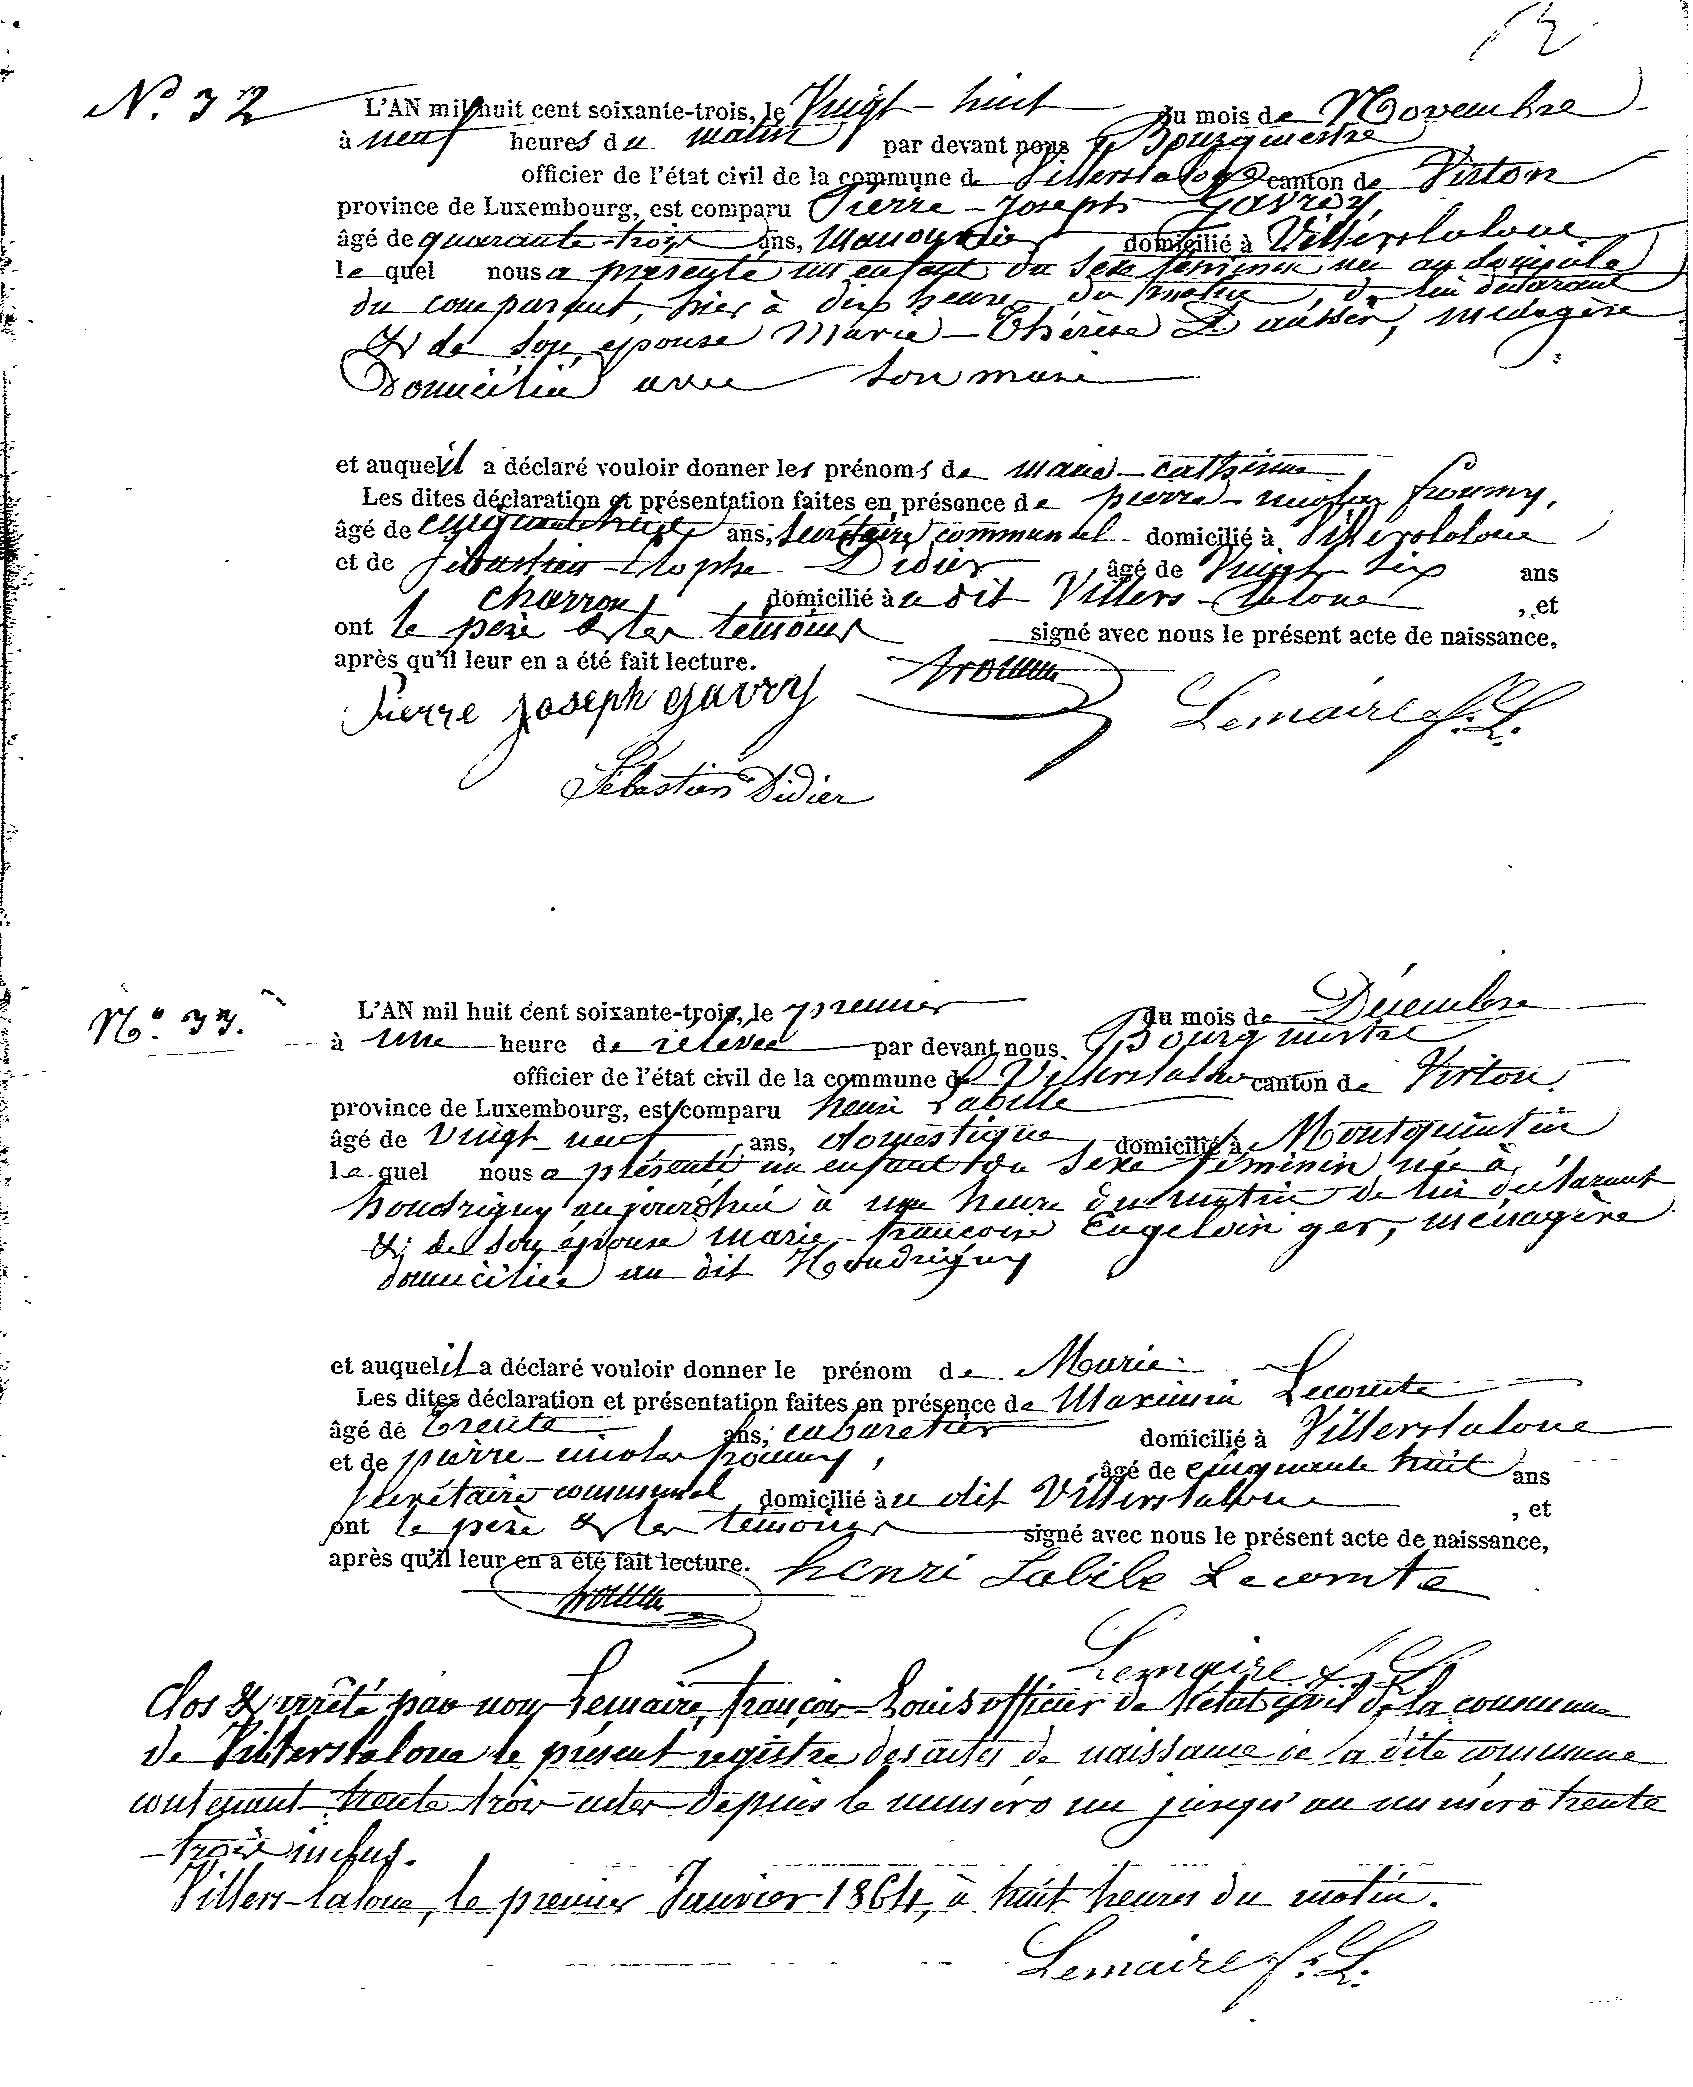 N.o 32
L'AN mil huit cent soixante-trois, le Vingt-huit du mois de Novembre
à neuf heures du matin par devant nous Bourgmestre
officier de l'état civil de la commune de Villerslaloue canton de Virton
province de Luxembourg, est comparu Pierre-Joseph Gavroy,
âgé de quarante-trois ans, Manouvrier domicilié à Villerslaloue
lequel nous a présenté un enfant du sexe féminin née au domicile
du comparant, hier à dix heures du matin, de lui déclarant
& de son épouse Marie-Thérèse ménagère
Domiciliée avec son mari
et auquel il a déclaré vouloir donner les prénoms de marie-catherine
Les dites déclaration et présentation faites en présence de pierre-nicolas froumy,
âgé de ans, secrétaire communal domicilié à Villerslaloue
et de Sébastien Didier âgé de Vingt six ans
charron domicilié à u dit Villers-laloue , et
ont le père & les témoins signé avec nous le présent acte de naissance,
après qu'il leur en a été fait lecture.
Pierre joseph gavroy Lemaire f. L.
Sébastien Didier
N.o 33.
L'AN mil huit cent soixante-trois, le premier du mois de Décembre
à une heure de relevée par devant nous Bourgmestre
officier de l'état civil de la commune de Villerslaloue canton de Virton
province de Luxembourg, est comparu henri Labille
âgé de Vingt-neuf ans, domestique domicilié à Montquintin
lequel nous a présenté un enfant du sexe féminin née à
houdrigny aujourd'hui à une heure du matin de lui déclarant
& de son épouse marie-françoise ménagère
domiciliée au dit Houdrigny
et auquel il a déclaré vouloir donner le prénom de Marie
Les dites déclaration et présentation faites en présence de Maximin Lecomte
âgé de trente ans, cabaretier domicilié à Villerslaloue
et de pierre-nicolas froumy, âgé de cinquante huit ans
secrétaire communal domicilié à u dit Villerslaloue , et
ont le père & les témoins signé avec nous le présent acte de naissance,
après qu'il leur en a été fait lecture. henri Labille Lecomte
Lemaire f. L.
Clos & arrêté par nous Lemaire, françois-Louis officier de l'état civil de la commune
de Villerslaloue le présent registre des actes de naissance de la dite commune
contenant trente-trois actes depuis le numéro un jusqu'au numéro trente
-trois inclus.
Villers-laloue, le premier Janvier 1864, à huit heures du matin.
Lemaire f. L.